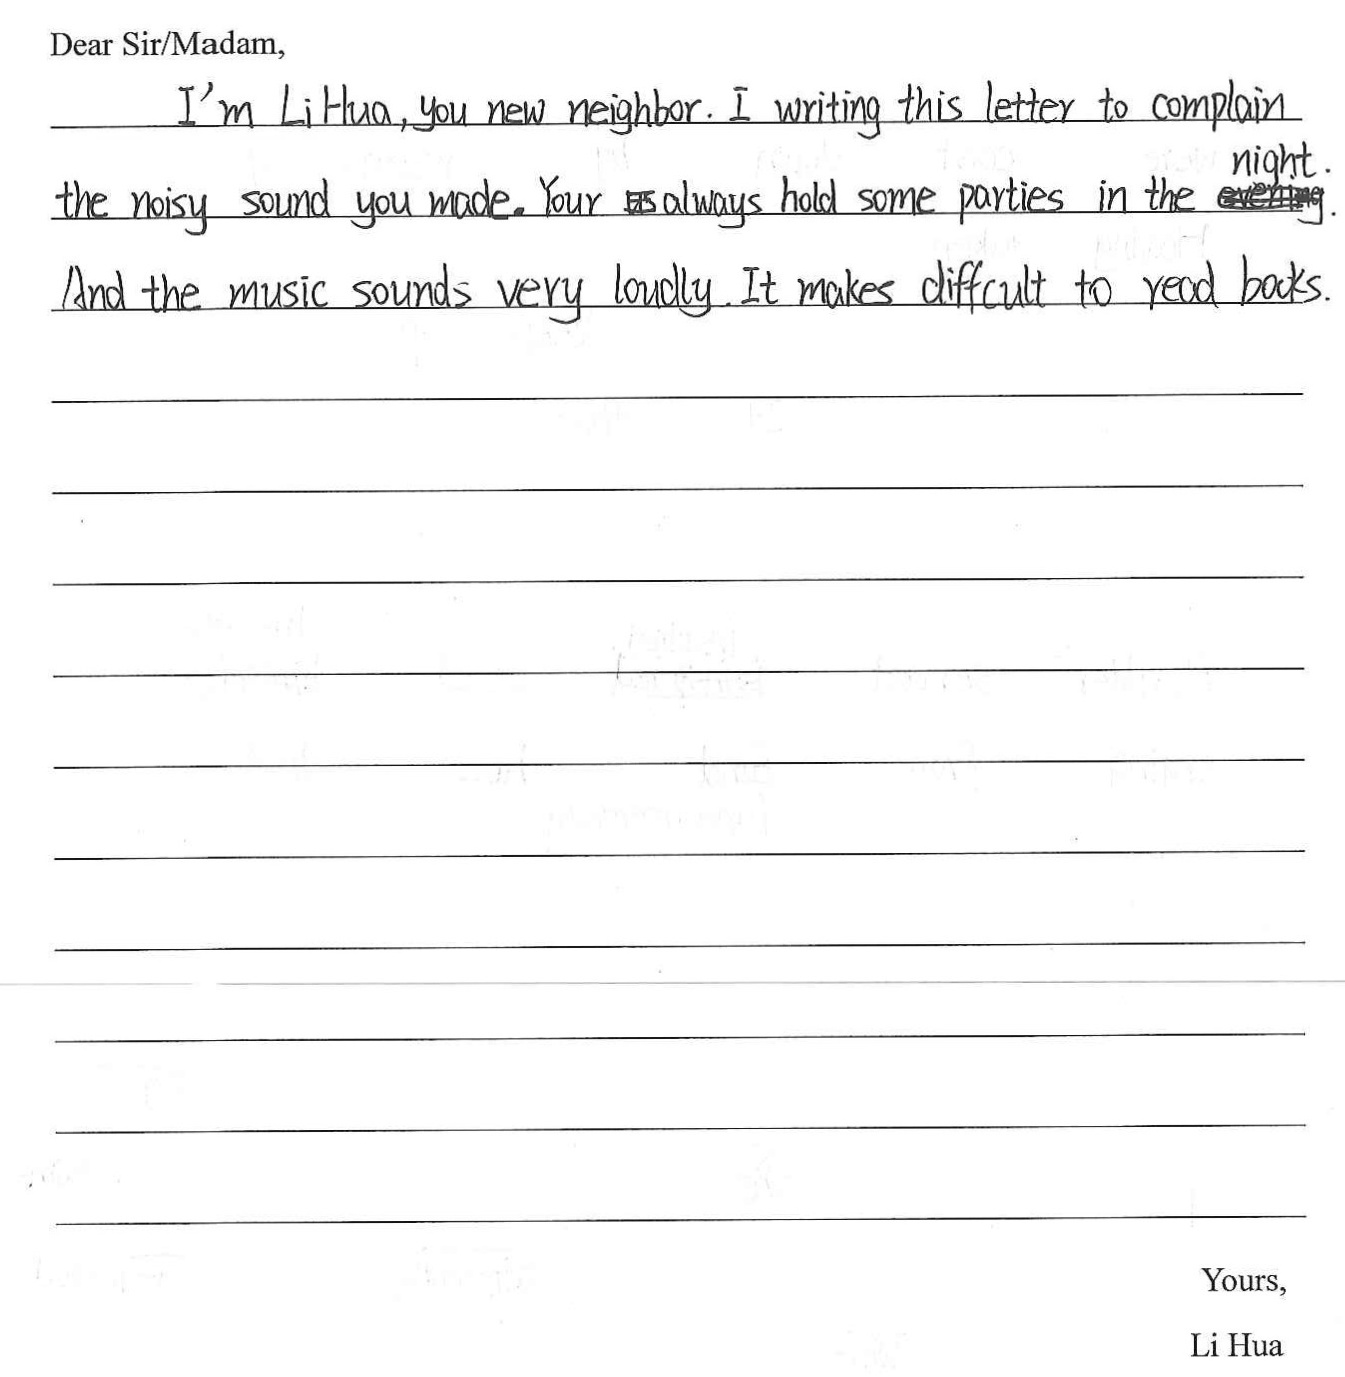 Dear Sir/Madam,
I'm Li Hua, you new neighbor. I writing this letter to complain
the noisy sound you made. Your always hold some parties in the night.
And the music sounds very loudly. It makes diffcult to read books.
Yours,
Li Hua